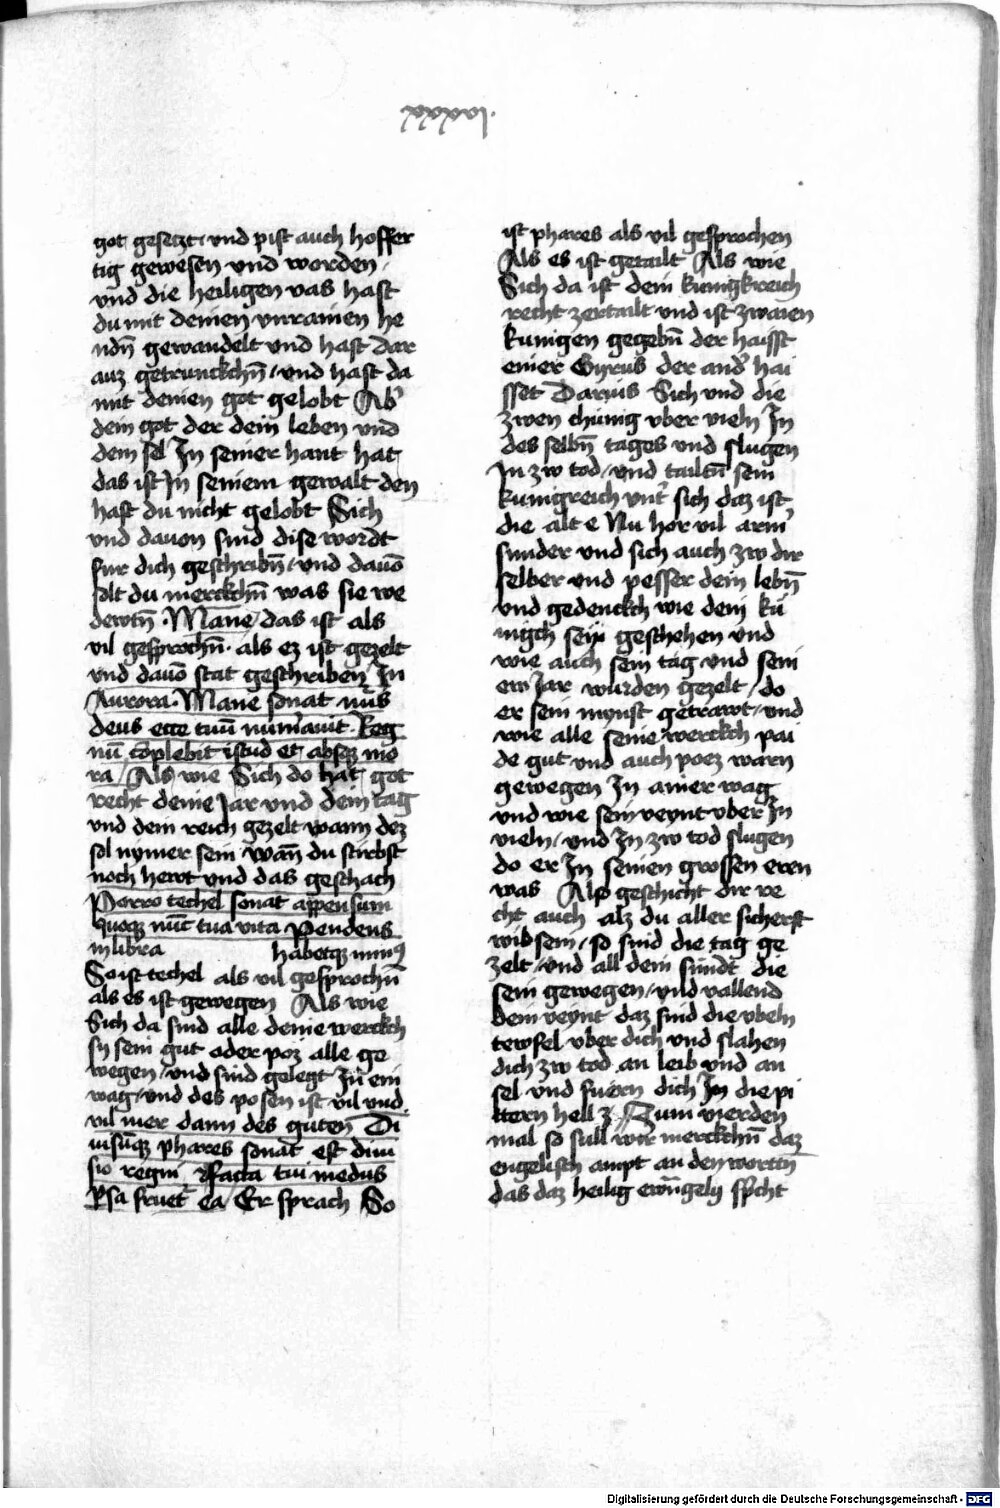 lxxxx.
got gesetzt / vnd pist auch hoffer
tig gewesen vnd worden /
vnd die heiligen vas hast
du mit deinen vnrainen he
ndn̄ gewandelt vnd hast dar
auz getrunckchn̄ / vnd hast da
mit deinen got gelobt Ab̕
dein got der dein leben vnd
dein sel In seiner hant hat
das ist In seinem gewalt den
hast du nicht gelobt Sich
vnd dauon sind dise wordt
fur dich geschribn̄ / vnd dauō
solt du merckchn̄ was sie we
dewtn̄ · Mane / das ist als
vil gesprochn̄ · als ez ist gezelt
vnd dauō stat geschriben In
Aurora · Mane sonat
deus ecce tuū num̕auit · Reg
nū cōplebit istud et absqz mo
ra / Als wie Sich do hat got
recht deine Jar vnd dein tag
vnd dein reich gezelt wann dez
sol nymer sein wan̄ du stirbst
noch hewt vnd das geschach
Porro techel sonat appensum
quoqz nūc tua vita Pendens
in libra habetqz min9
So ist techel als vil gesprochn̄
als es ist gewegen Als wie
Sich da sind alle deine werckch
sy sein gut oder poz alle ge
wegen / vnd sind gelegt In ein
wag / vnd des posen ist vil vnd
vil mer dann des guten Di
uisūqz phares sonat est diui
sio regni facta tui medus
P̱sa fruet̕ ea / Er sprach So
ist phares als vil gesprochen
Als es ist getailt Als wie
Sich da ist dein kunigkreich
recht zertailt vnd ist zwaien
kunigen gegebn̄ der haisst
einer Cyrus der and̕ hai
sset Darius Sich vnd die
zwen chunig vber vieln In
des selbn̄ tages vnd slugen
In zw tod / vnd tailtn̄ sein
kunigreich vnt̕ sich daz ist
die alt e Nu hor vil arm̕
sunder vnd sich auch zw dir
selber vnd pesser dein lebn̄
vnd gedenckch wie dem ku
nigch sein geschehen vnd
wie auch sein tag vnd sein
ew Jar wurden gezelt / do
er sein mynst getrawt / vnd
wie alle seine werckch pai
de gut vnd auch poez warn
gewegen In ainer wag
vnd wie sein veynt vber In
vieln / vnd In zw tod slugen
do er In seinen grossen eren
was Also geschicht dir re
cht auch alz du aller sicherst
wild sein / so sind die tag ge
zelt / vnd all dein sundt die
sein gewegen / vnd vallend
dein veynt daz sind die vbeln
tewfel vber dich vnd slahen
dich zw tod an leib vnd an
sel vnd fuern dich In die pi
ttern hell Zum vierden
mal so sull wir merckchn̄ daz
engelisch ampt an den worttn̄
das daz heilig ewn̄gely sp̕cht
Digitalisierung gefördert durch die Deutsche Forschungsgemeinschaft - DFG